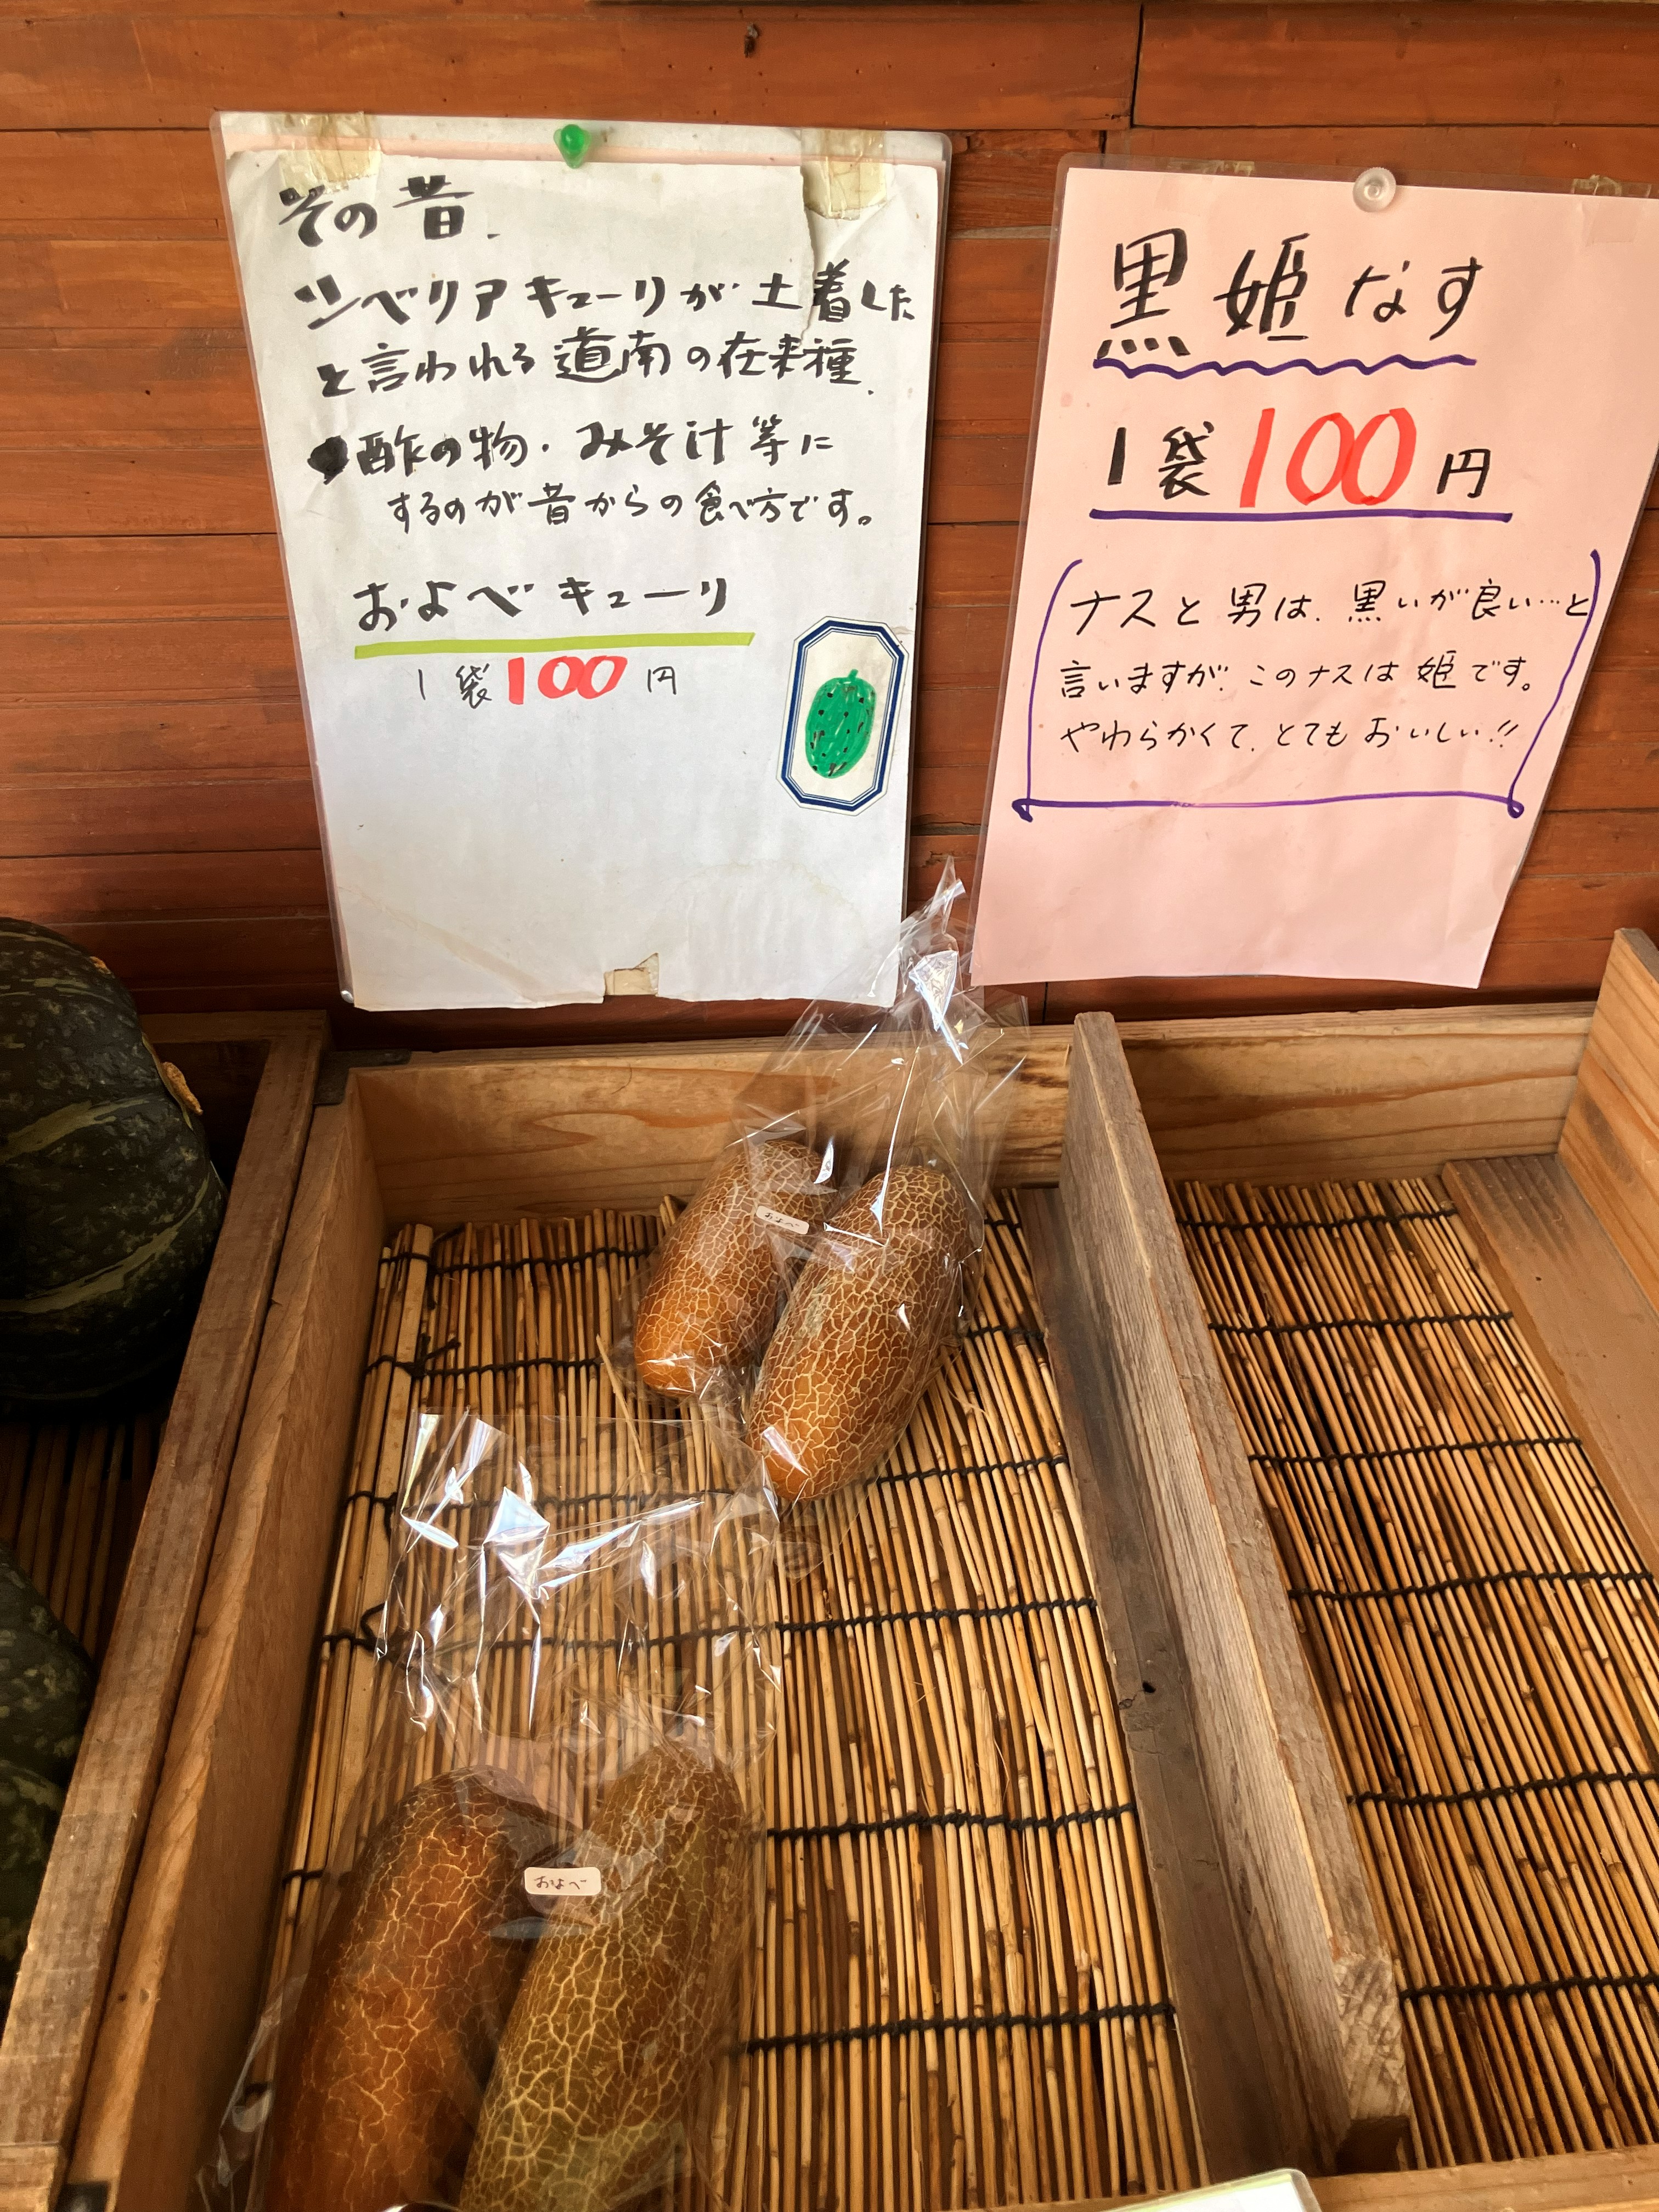 その昔.
シベリアキューリが土着した
と言われる道南の在来種.
●酢の物・みそ汁等に
するのが昔からの食べ方です。
およべキューリ
1袋100円
黒姫なす
1袋100円
ナスと男は、黒いが良い…と
言いますが、このナスは姫です。
やわらかくて、とてもおいしい!!
およべ
およべ